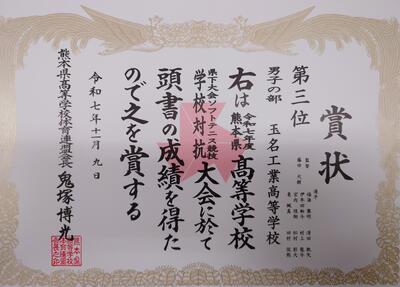 賞状
第三位
男子の部　玉名工業高等学校
監督
選手
右は令和七年度熊本県高等学校
県下大会ソフトテニス競技
学校対抗大会に於て
頭書の成績を得た
ので之を賞する
令和七年十一月九日
熊本県高等学校体育連盟会長　鬼塚博光